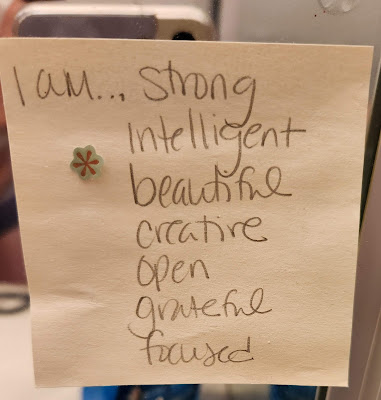 I am... Strong
Intelligent
beautiful
creative
open
grateful
focused